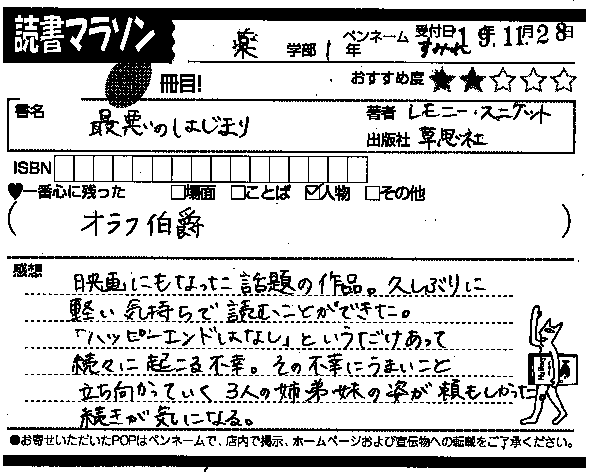 読書マラソン
薬 学部 1 年 ペンネーム すみれ 受付日 19年11月28日
冊目! おすすめ度 ★★☆☆☆
書名 最悪のはじまり 著者 レモニー・スニケット
出版社 草思社
ISBN
♥一番心に残った □場面 □ことば ☑人物 □その他
( オラフ伯爵 )
感想
映画にもなった話題の作品。久しぶりに
軽い気持ちで読むことができた。
「ハッピーエンドはなし」というだけあって
続々に起こる不幸。その不幸にうまいこと
立ち向かっていく3人の姉弟妹の姿が頼もしかった。
続きが気になる。
●お寄せいただいたPOPはペンネームで、店内で掲示、ホームページおよび宣伝物への転載をご了承ください。